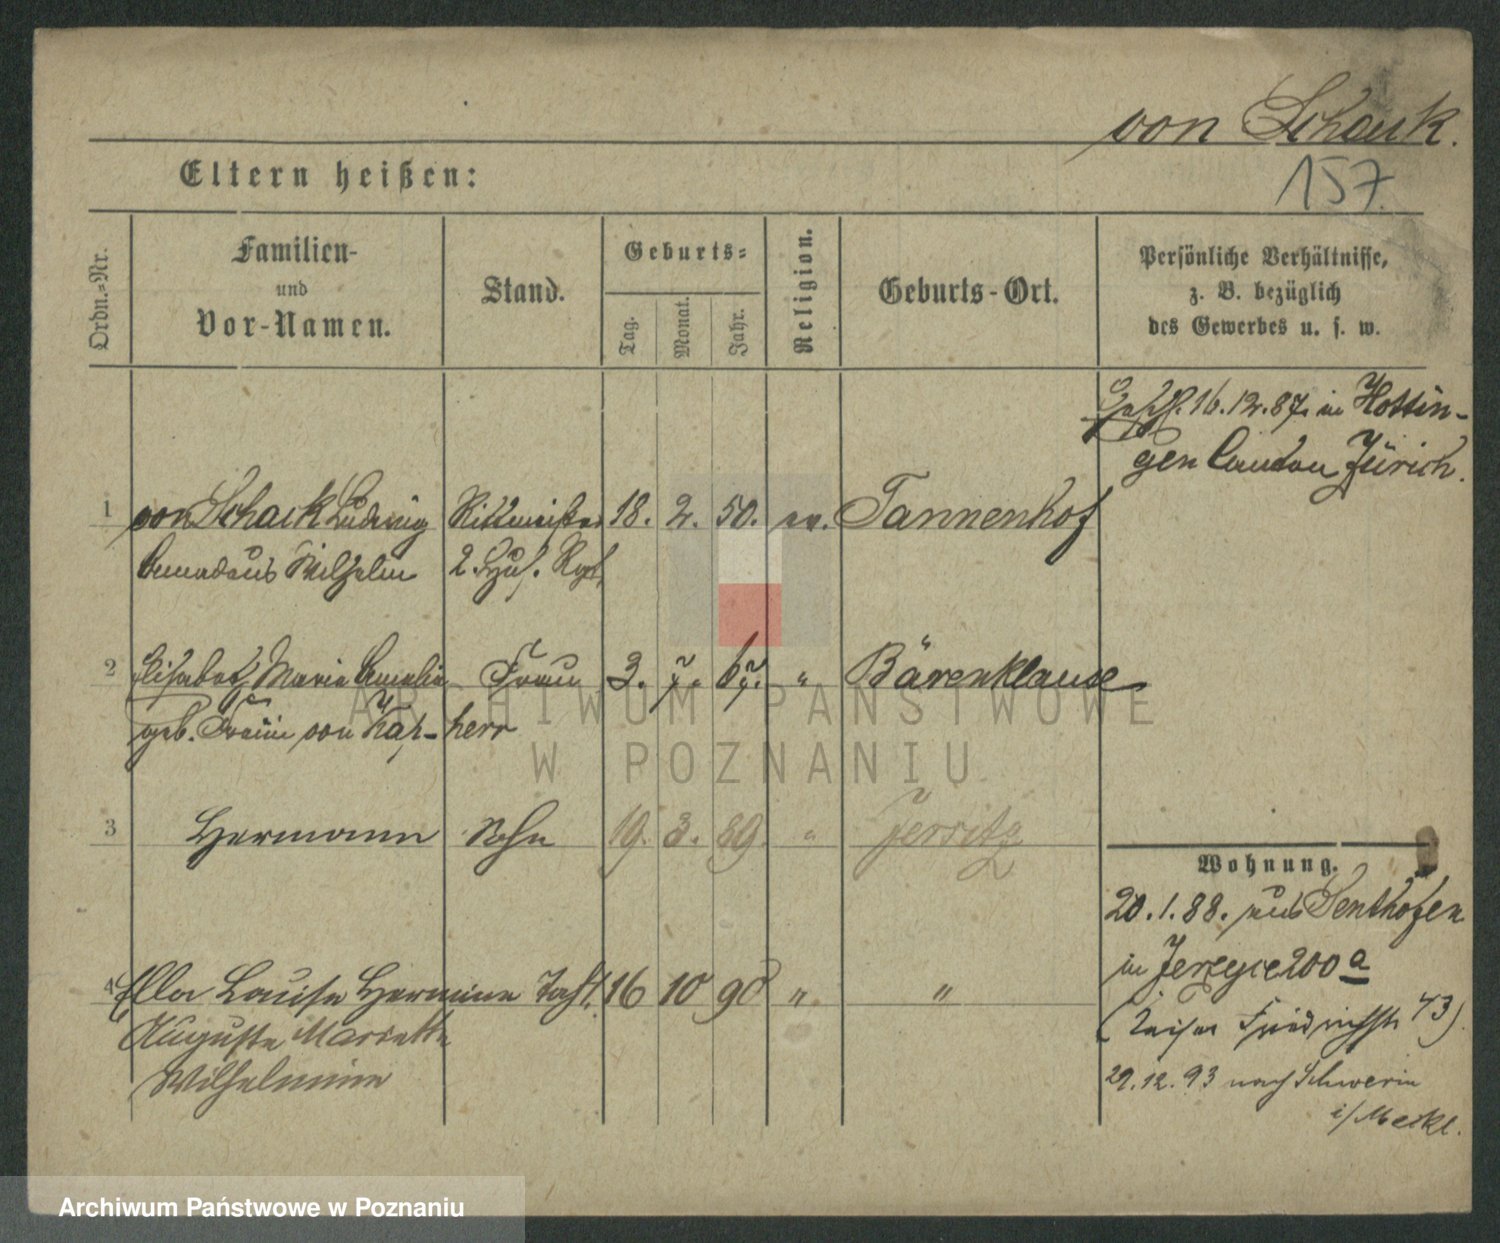 von Schack.
157.
Eltern heißen:
Ordn.=Nr.
Familien-
und
Vor-Namen.
Stand.
Geburts=
Tag.
Monat.
Jahr.
Religion.
Geburts-Ort.
Persönliche Verhältnisse,
z. B. bezüglich
des Gewerbes u. s. w.
16.12.87. in Hottin-
gen Canton Zürich.
1 von Schack Ludwig Rittmeister 18. 2. 50. ev. Tannenhof
Amadeus Wilhelm 2. Hus. Rgt.
2 Elisabet Marie Amalie Frau 3. 7. 67. " Bärenklause
geb. Freiin von Kap-herr
3 Hermann Sohn 19. 3. 89. " Jersitz
Wohnung.
20.1.88. aus Senthofen
in Jerzyce 200 a
(Kaiser Friedrichstr 43)
29.12.93 nach Schwerin
i/Meckl.
4 Ella Louise Hermine Tocht. 16 10 90 " "
Auguste Mariette
Wilhelmine
ARCHIWUM PAŃSTWOWE
W POZNANIU
Archiwum Państwowe w Poznaniu